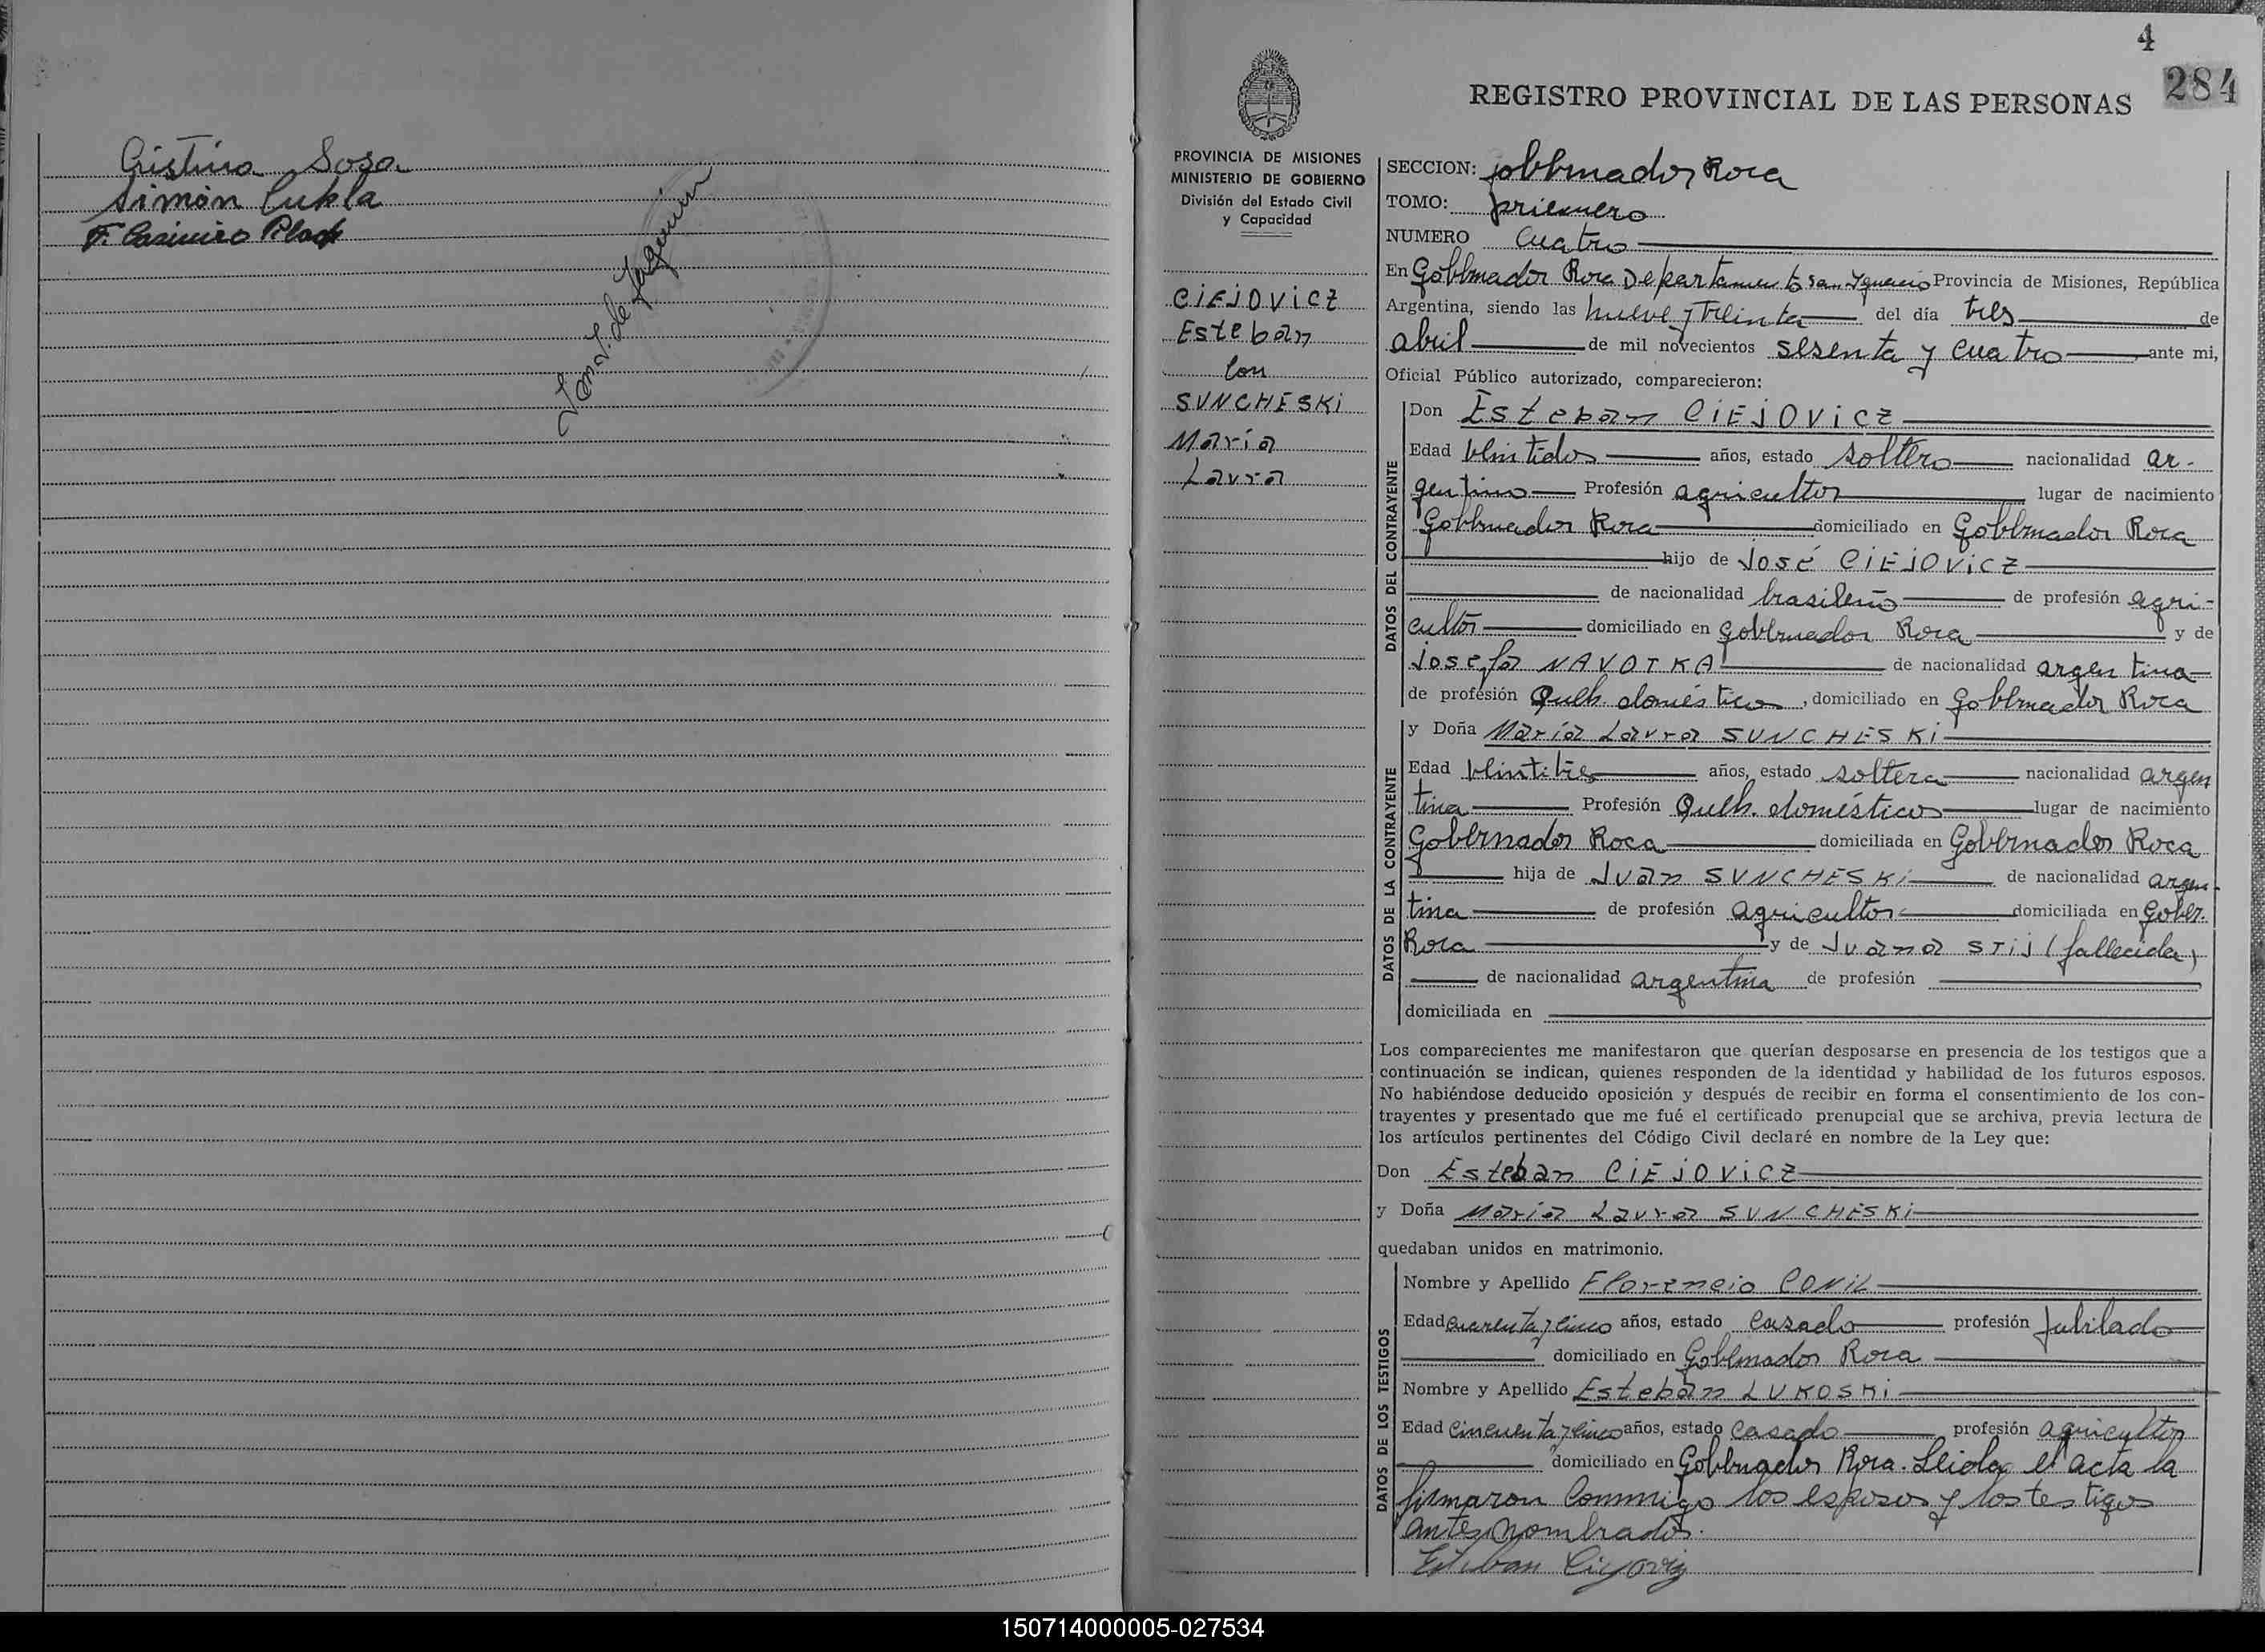 Cristina Sosa
Simón Cukla
F. Casimiro Plach
4
284
REGISTRO PROVINCIAL DE LAS PERSONAS
PROVINCIA DE MISIONES
MINISTERIO DE GOBIERNO
División del Estado Civil
y Capacidad
CIEJOVICZ
Esteban
con
SUNCHESKI
María
Laura
SECCION: Gobernador Roca
TOMO: primero
NUMERO cuatro
En Gobernador Roca Departamento San Ygnacio Provincia de Misiones, República
Argentina, siendo las nueve y treinta del día tres de
abril de mil novecientos sesenta y cuatro, ante mi,
Oficial Público autorizado, comparecieron:
DATOS DEL CONTRAYENTE
Don Esteban CIEJOVICZ
Edad veintidos años, estado soltero nacionalidad ar-
gentino Profesión agricultor lugar de nacimiento
Gobernador Roca domiciliado en Gobernador Roca
hijo de José CIEJOVICZ
de nacionalidad brasileño de profesión agri-
cultor domiciliado en Gobernador Roca y de
Josefa NAVOTKA de nacionalidad argentina
de profesión Queh. domésticos, domiciliado en Gobernador Roca
DATOS DE LA CONTRAYENTE
y Doña María Laura SUNCHESKI
Edad veintitres años, estado soltera nacionalidad argen
tina Profesión Queh. domésticos lugar de nacimiento
Gobernador Roca domiciliada en Gobernador Roca
hija de Juan SUNCHESKI de nacionalidad argen-
tina de profesión agricultor domiciliada en Gober.
Roca y de Juana STIJ (fallecida)
de nacionalidad argentina de profesión
domiciliada en
Los comparecientes me manifestaron que querían desposarse en presencia de los testigos que a
continuación se indican, quienes responden de la identidad y habilidad de los futuros esposos.
No habiéndose deducido oposición y después de recibir en forma el consentimiento de los con-
trayentes y presentado que me fué el certificado prenupcial que se archiva, previa lectura de
los artículos pertinentes del Código Civil declaré en nombre de la Ley que:
Don Esteban CIEJOVICZ
y Doña María Laura SUNCHESKI
quedaban unidos en matrimonio.
DATOS DE LOS TESTIGOS
Nombre y Apellido Florencio CONIL
Edad cuarenta y cinco años, estado casado profesión Jubilado
domiciliado en Gobernador Roca
Nombre y Apellido Esteban LUKOSKI
Edad cincuenta y cinco años, estado casado profesión agricultor
domiciliado en Gobernador Roca. Leida el acta la
firmaron conmigo los esposos y los testigos
antes nombrados.
Esteban
150714000005-027534